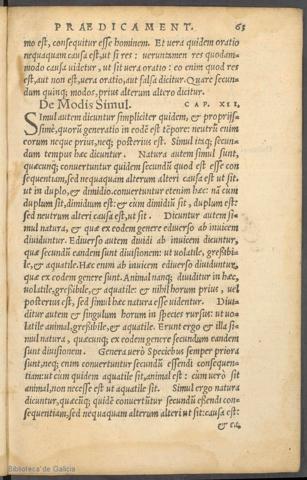 PRÆDICAMENT. 63
mo est, consequitur esse hominem. Et uera quidem oratio
nequaquam causa est, ut si res: ueruntamen res quodam-
modo causa uidetur, ut sit uera oratio: eo enim quod res
est, aut non est, uera oratio, aut falsa dicitur. Quare secun-
dum quinq; modos, prius alterum altero dicitur.
De Modis Simul. CAP. XII.
Simul autem dicuntur simpliciter quidem, & proprijs-
simè, quorũ generatio in eodẽ est tẽpore: neutrũ enim
eorum neque prius, neq; posterius est. Simul itaq; secun-
dum tempus hæc dicuntur. Natura autem simul sunt,
quæcunq; conuertuntur quidem secundũ quod est esse con
sequentiam, sed nequaquam alterum alteri causa est ut sit.
ut in duplo, & dimidio. conuertuntur etenim hæc: nã cum
duplum sit, dimidium est: & cùm dimidiũ sit, duplum est:
sed neutrum alteri causa est, ut sit. Dicuntur autem si-
mul natura, & quæ ex eodem genere ediuerso ab inuicem
diuiduntur. Ediuerso autem diuidi ab inuicem dicuntur,
quæ secundũ eandem sunt diuisionem: ut uolatile, gresibi-
le, & aquatile. Hæc enim ab inuicem ediuerso diuidũtur,
quæ ex eodem genere sunt. Animal nanq; diuiditur in hæc,
uolatile, gresibile, & aquatile: & nihil horum prius, uel
posterius est, sed simul hæc natura esse uidentur. Diui-
ditur autem & singulum horum in species rursus: ut uo-
latile animal, gresibile, & aquatile. Erunt ergo & illa si-
mul natura, quæcunq; ex eodem genere secundum eandem
sunt diuisionem. Genera uerò Speciebus semper priora
sunt, neq; enim conuertuntur secundũ essendi consequen-
tiam: ut cùm quidem aquatile sit, animal est: cùm uerò sit
animal, non necesse est ut aquatile sit. Simul ergo natura
dicuntur, quæcũq; quidẽ conuertũtur secundũ essendi con-
sequentiam, sed nequaquam alterum alteri ut sit: causa est:
& ea,
Biblioteca de Galicia